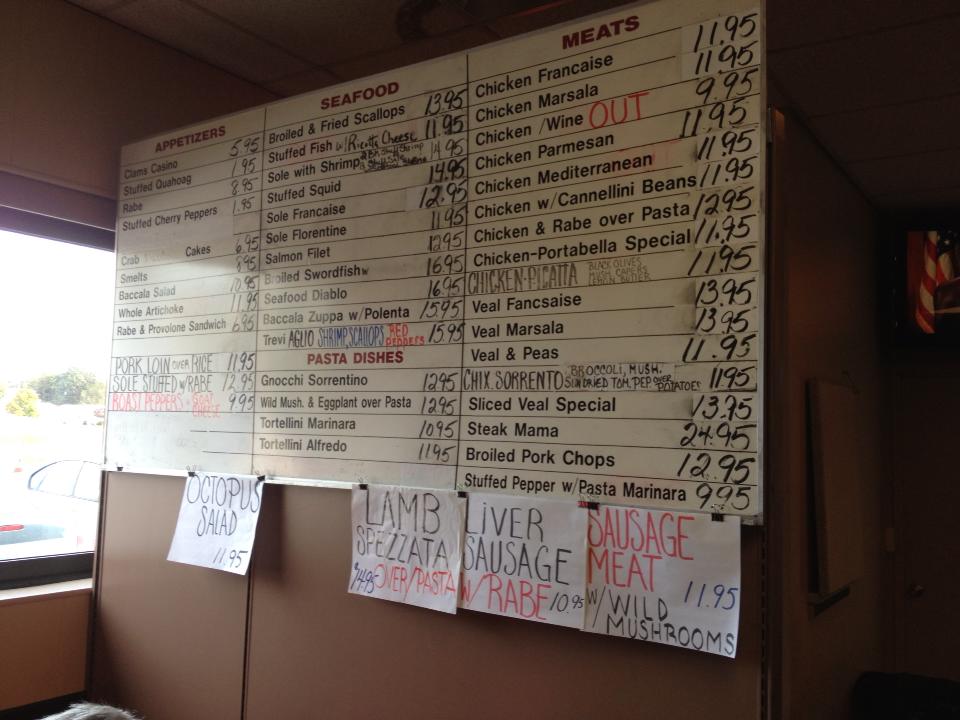 APPETIZERS
Clams Casino 5.95
Stuffed Quahog 1.95
Rabe 8.95
Stuffed Cherry Peppers 1.95
Crab Cakes 6.95
Smelts 8.95
Baccala Salad 10.95
Whole Artichoke 11.95
Rabe & Provolone Sandwich 6.95
PORK LOIN OVER RICE 11.95
SOLE STUFFED W/RABE 12.95
ROAST PEPPERS GOAT CHEESE 9.95
SEAFOOD
Broiled & Fried Scallops 13.95
Stuffed Fish w/Ricotta Cheese 11.95
Sole with Shrimp 14.95
Stuffed Squid 14.95
Sole Francaise 12.95
Sole Florentine 11.95
Salmon Filet 12.95
Broiled Swordfish 16.95
Seafood Diablo 16.95
Baccala Zuppa w/Polenta 15.95
Trevi AGLIO SHRIMP, SCALLOPS, RED PEPPERS 15.95
PASTA DISHES
Gnocchi Sorrentino 12.95
Wild Mush. & Eggplant over Pasta 12.95
Tortellini Marinara 10.95
Tortellini Alfredo 11.95
MEATS 11.95
Chicken Francaise 11.95
Chicken Marsala 9.95
Chicken /Wine OUT 11.95
Chicken Parmesan 11.95
Chicken Mediterranean 11.95
Chicken w/Cannellini Beans 12.95
Chicken & Rabe over Pasta 11.95
Chicken-Portabella Special 11.95
CHICKEN-PICATTA BLACK OLIVES MUSH. CAPERS LEMON BUTTER
Veal Fancsaise 13.95
Veal Marsala 13.95
Veal & Peas 11.95
CHIX. SORRENTO BROCCOLI, MUSH. SUNDRIED TOM. PEP. OVER POTATOES 11.95
Sliced Veal Special 13.95
Steak Mama 24.95
Broiled Pork Chops 12.95
Stuffed Pepper w/Pasta Marinara 9.95
OCTOPUS
SALAD
11.95
LAMB
SPEZZATA
$14.95 OVER/PASTA
LIVER
SAUSAGE
W/RABE 10.95
SAUSAGE
MEAT 11.95
W/WILD
MUSHROOMS